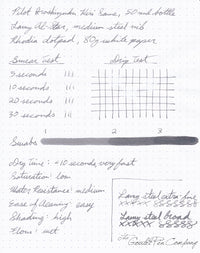 Pilot Iroshizuku Kiri Same, 50 ml bottle
Lamy Al-Star, medium steel nib
Rhodia dotpad, 80g white paper
Smear Test
Dry Test
5 seconds
10 seconds
20 seconds
30 seconds
Swabs
1
2
3
Dry Time: ~10 seconds very fast
Saturation: low
Water Resistance: medium
Ease of cleaning: easy
Shading: high
Flow: wet
Lamy steel extra-fine
xxxxxx
Lamy steel broad
xxxxxx
The Goulet Pen Company